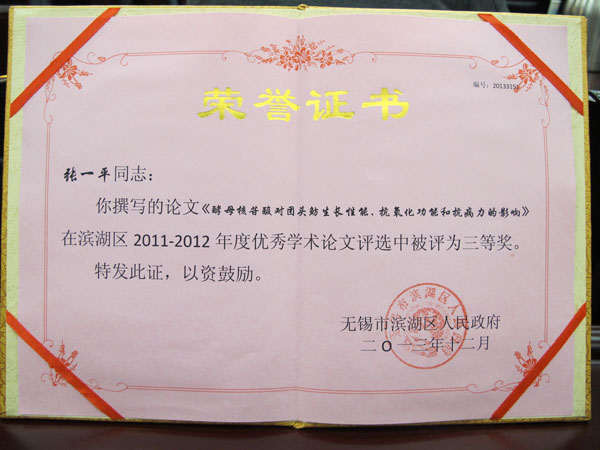 编号：2013315
荣誉证书
张一平同志：
你撰写的论文《酵母核苷酸对团头鲂生长性能、抗氧化功能和抗病力的影响》
在滨湖区 2011-2012 年度优秀学术论文评选中被评为三等奖。
特发此证，以资鼓励。
无锡市滨湖区人民政府
二〇一三年十二月